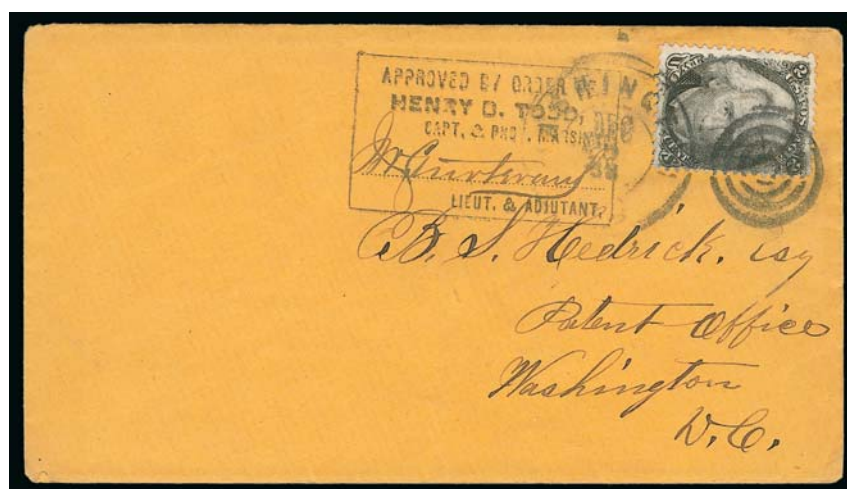 APPROVED BY ORDER OF
HENRY B. TODD,
CAPT. & PROV. MARSHAL
LIEUT. & ADJUTANT.
DEC
B. S. Hedrick, Esq
Patent Office
Washington
D.C.